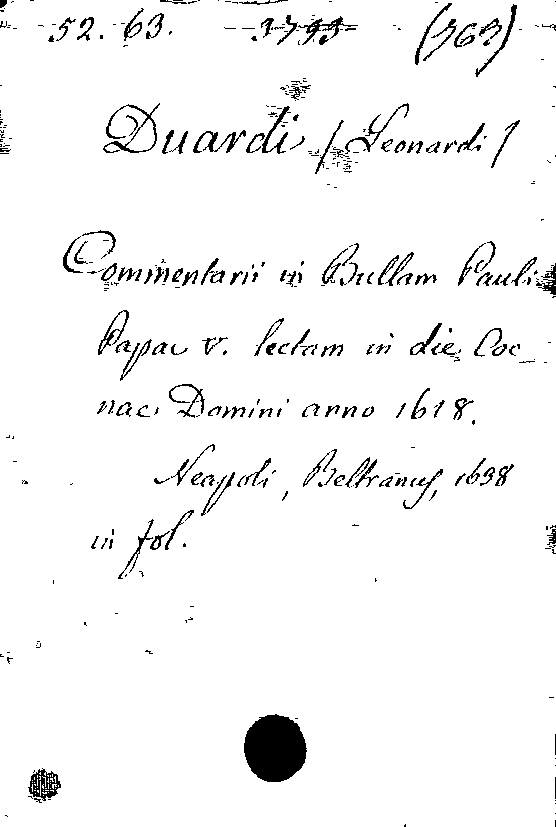 52. 63. 3793 (763)
Duardi / Leonardi /
Commentarii in Bullam Pauli
Papae V. lectam in die Coe_
nae Domini anno 1618.
Neapoli, Beltranus, 1638
in fol.